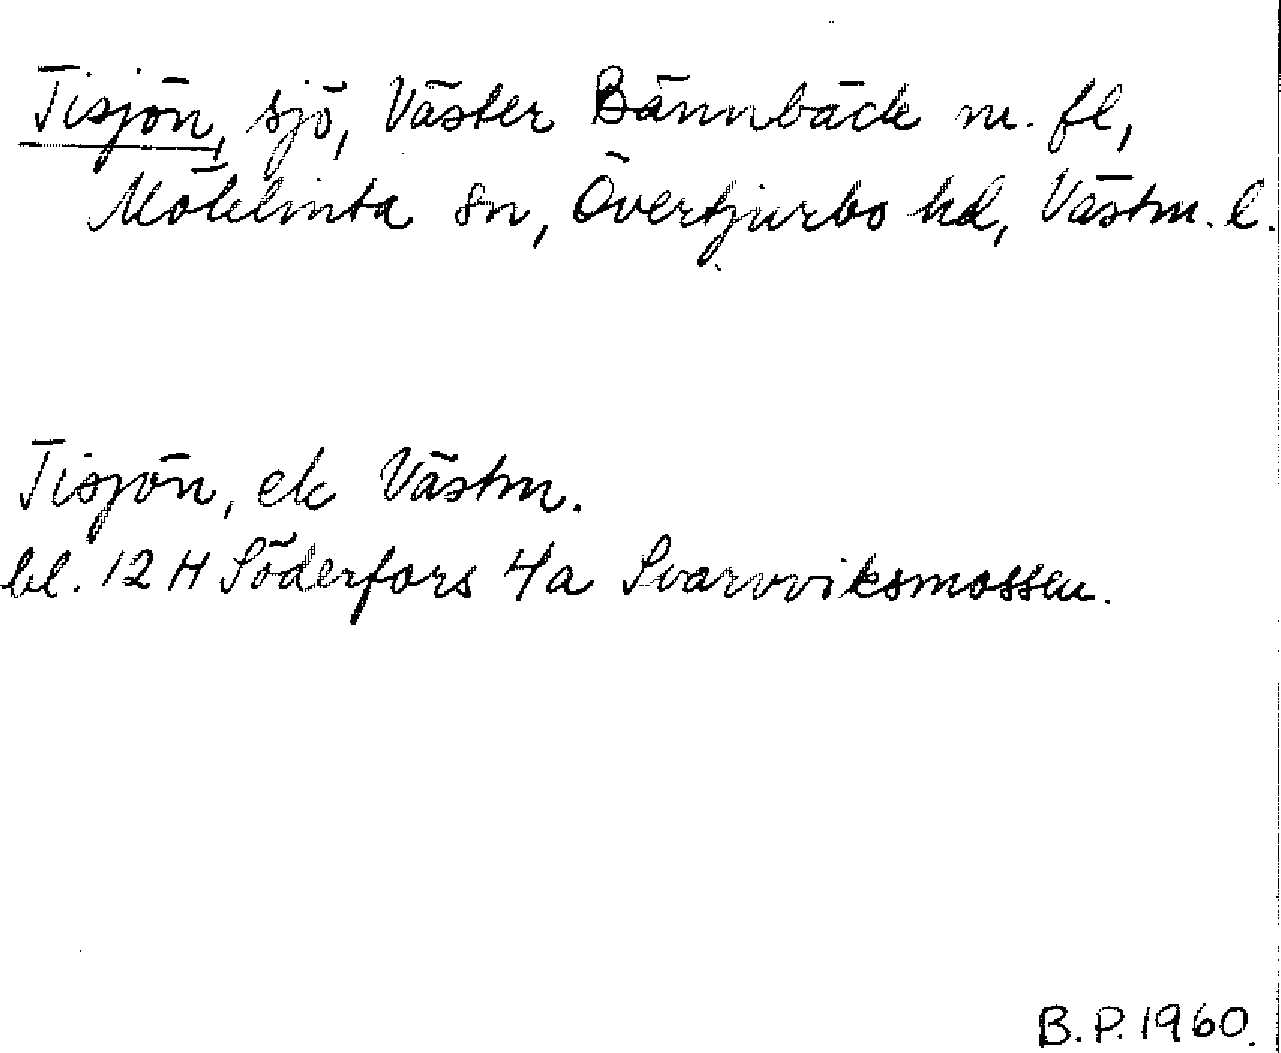 Tisjön, sjö, Väster Bännbäck m. fl,
Möklinta sn, Övertjurbo hd, Västm. l.
Tisjön, ek Västm.
bl. 12 H Söderfors 4a Svarvviksmossen.
B.P. 1960.